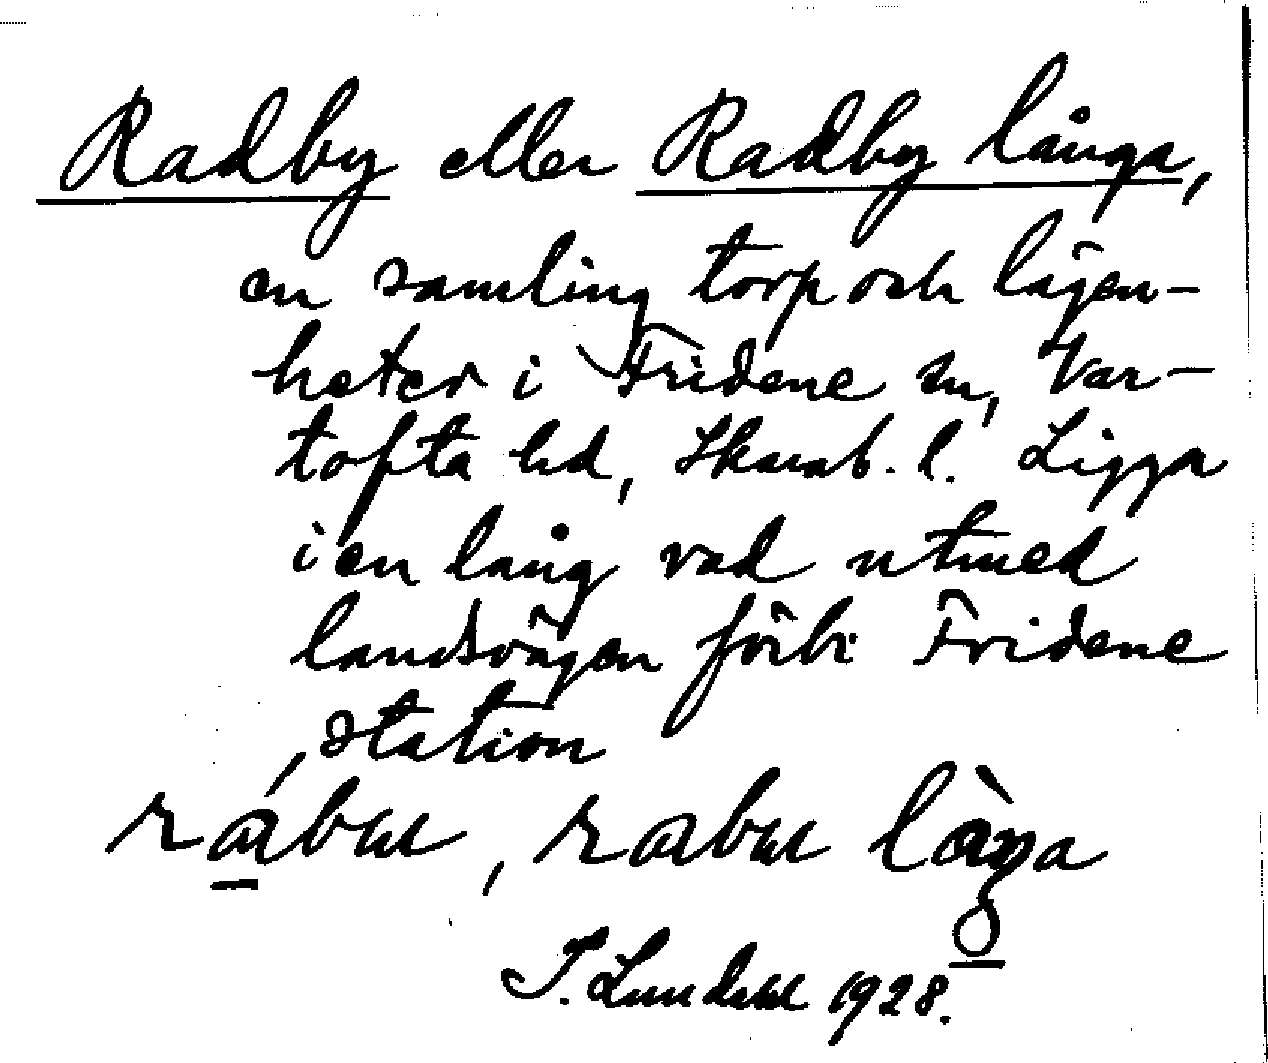 Radby eller Radby långa,
en samling torp och lägen-
heter i Fridene sn, Var-
tofta hd, Skarab. l. Ligga
i en lång rad utmed
landsvägen förbi Fridene
station
I. Lundahl 1928.